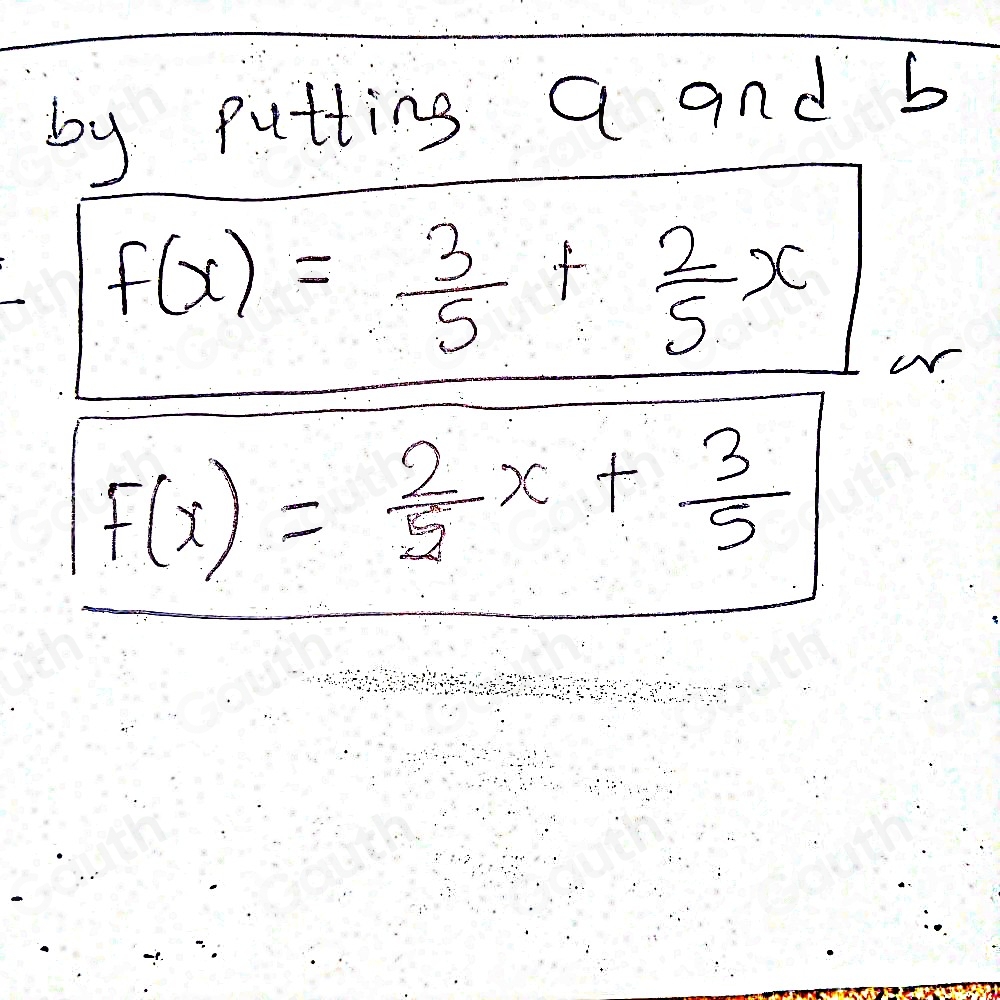 by putting a and b
f(x) = 3/5 + 2/5 x
or
f(x) = 2/5 x + 3/5